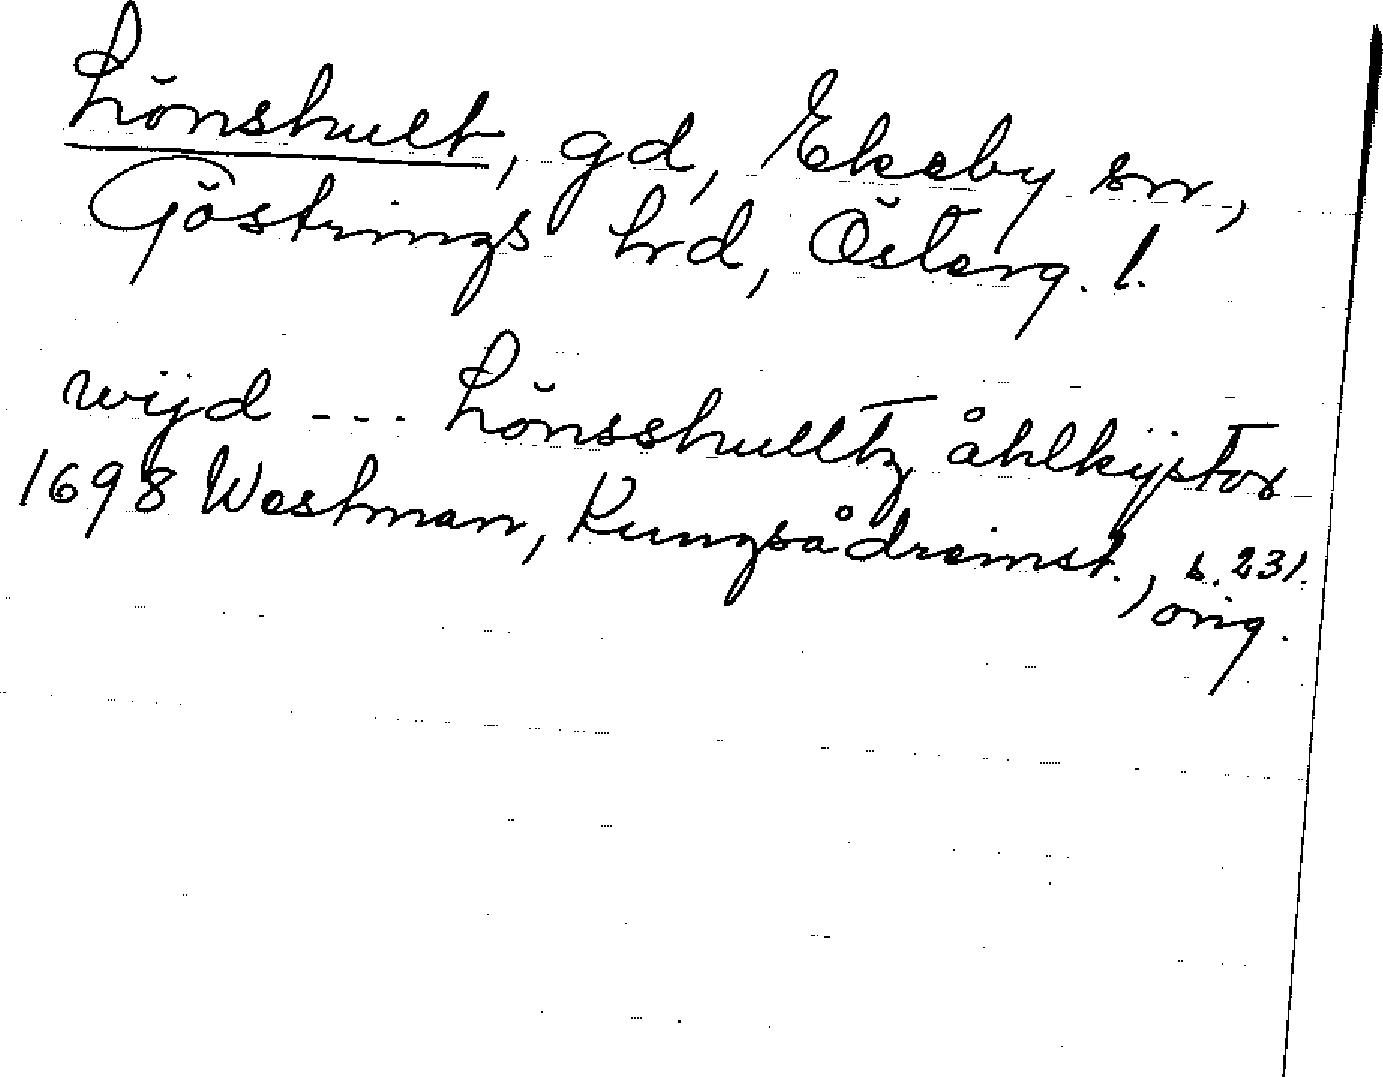 Lönshult, gd, Ekeby sn,
Göstrings hd, Österg. l.
wijd --- Lönsshulltz åhlkÿstor
1698 Westman, Kungsådreinst., s. 231.
orig.